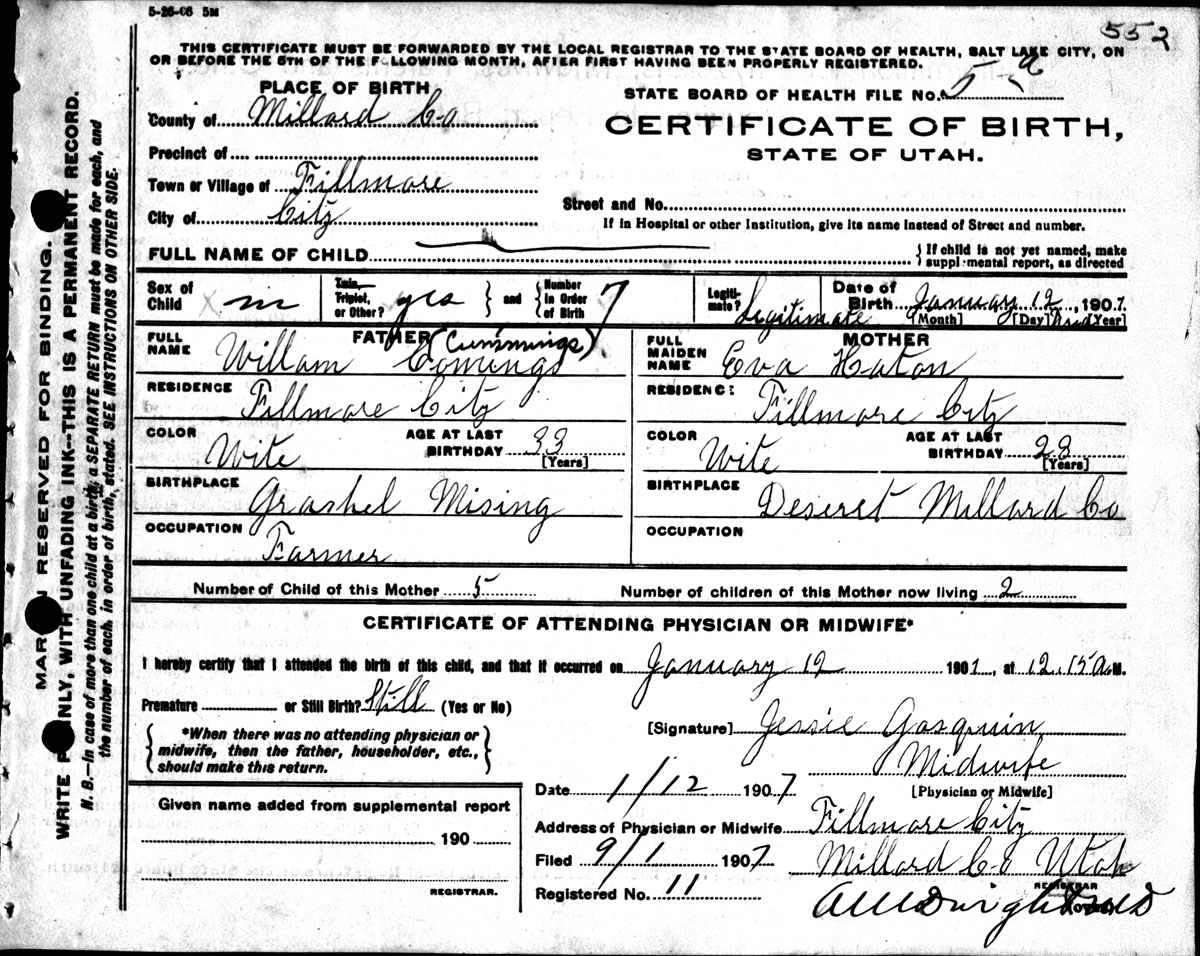 5-26-06 5M
552
THIS CERTIFICATE MUST BE FORWARDED BY THE LOCAL REGISTRAR TO THE STATE BOARD OF HEALTH, SALT LAKE CITY, ON
OR BEFORE THE 5TH OF THE FOLLOWING MONTH, AFTER FIRST HAVING BEEN PROPERLY REGISTERED.
PLACE OF BIRTH
County of Millard Co
Precinct of
Town or Village of Fillmore
City of City
STATE BOARD OF HEALTH FILE No. 5 a
CERTIFICATE OF BIRTH,
STATE OF UTAH.
Street and No.
If in Hospital or other Institution, give its name instead of Street and number.
FULL NAME OF CHILD
If child is not yet named, make
supplemental report, as directed
Sex of Child m
Twin, Triplet, or Other? yes and Number in Order of Birth 7
Legitimate? Legitimate
Date of Birth January 12, 1907.
[Month] [Day] [Year]
FATHER (Cummings)
FULL NAME Willam Comings
RESIDENCE Fillmore City
COLOR Wite AGE AT LAST BIRTHDAY 33
[Years]
BIRTHPLACE Grashel Mising
OCCUPATION Farmer
MOTHER
FULL MAIDEN NAME Eva Haton
RESIDENCE Fillmore City
COLOR Wite AGE AT LAST BIRTHDAY 28
[Years]
BIRTHPLACE Deseret Millard Co
OCCUPATION
Number of Child of this Mother 5 Number of children of this Mother now living 2
CERTIFICATE OF ATTENDING PHYSICIAN OR MIDWIFE*
I hereby certify that I attended the birth of this child, and that it occurred on January 12 1907, at 12.15 A.M.
Premature or Still Birth? Still (Yes or No)
*When there was no attending physician or
midwife, then the father, householder, etc.,
should make this return.
[Signature] Jessie Gasquin
Midwife
[Physician or Midwife]
Date 1/12 1907
Address of Physician or Midwife Fillmore City
Millard Co Utah
Filed 9/1 1907
Registered No. 11
REGISTRAR
Given name added from supplemental report
190
REGISTRAR.
MARGIN RESERVED FOR BINDING.
WRITE PLAINLY, WITH UNFADING INK--THIS IS A PERMANENT RECORD.
N. B.—In case of more than one child at a birth, a SEPARATE RETURN must be made for each, and
the number of each, in order of birth, stated. SEE INSTRUCTIONS ON OTHER SIDE.